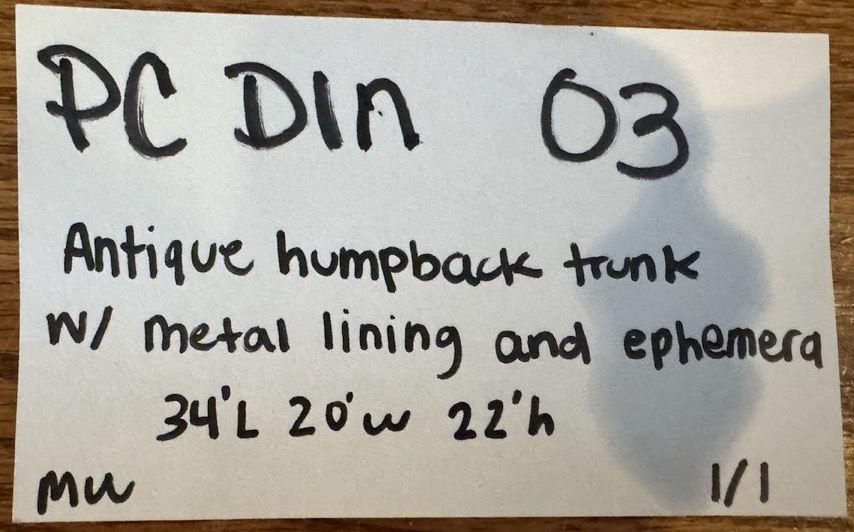 PC DIn 03
Antique humpback trunk
w/ metal lining and ephemera
34'L 20'w 22'h
MW 1/1